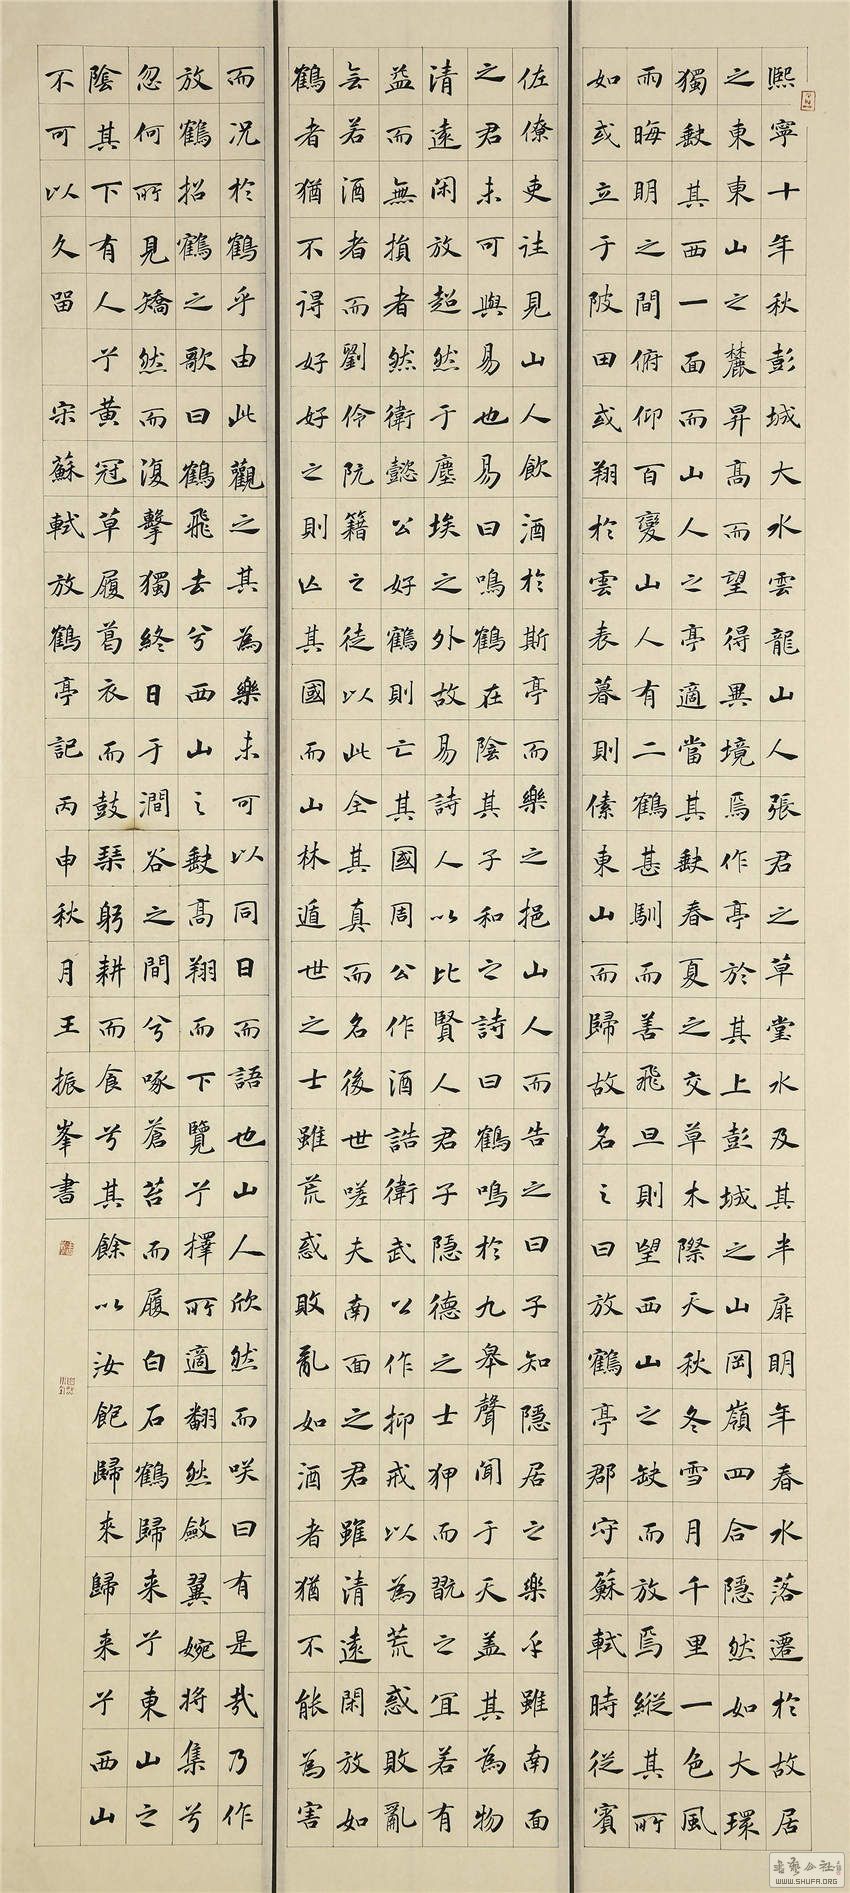 熙寧十年秋彭城大水雲龍山人張君之草堂水及其半扉明年春水落遷於故居
之東東山之麓昇高而望得異境焉作亭於其上彭城之山岡嶺四合隱然如大環
獨缺其西一面而山人之亭適當其缺春夏之交草木際天秋冬雪月千里一色風
雨晦明之間俯仰百變山人有二鶴甚馴而善飛旦則望西山之缺而放焉縱其所
如或立于陂田或翔於雲表暮則傃東山而歸故名之曰放鶴亭郡守蘇軾時從賓
佐僚吏往見山人飲酒於斯亭而樂之挹山人而告之曰子知隱居之樂乎雖南面
之君未可與易也易曰鳴鶴在陰其子和之詩曰鶴鳴於九皋聲聞于天蓋其為物
清遠閑放超然于塵埃之外故易詩人以比賢人君子隱德之士狎而翫之宜若有
益而無損者然衛懿公好鶴則亡其國周公作酒誥衛武公作抑戒以為荒惑敗亂
無若酒者而劉伶阮籍之徒以此全其真而名後世嗟夫南面之君雖清遠閑放如
鶴者猶不得好好之則亡其國而山林遁世之士雖荒惑敗亂如酒者猶不能為害
而況於鶴乎由此觀之其為樂未可以同日而語也山人欣然而咲曰有是哉乃作
放鶴招鶴之歌曰鶴飛去兮西山之缺高翔而下覽兮擇所適翻然斂翼婉將集兮
忽何所見矯然而復擊獨終日于澗谷之間兮啄蒼苔而履白石鶴歸來兮東山之
陰其下有人兮黃冠草履葛衣而鼓琴躬耕而食兮其餘以汝飽歸來歸來兮西山
不可以久留 宋蘇軾放鶴亭記丙申秋月王振峯書
WWW.SHUFA.ORG